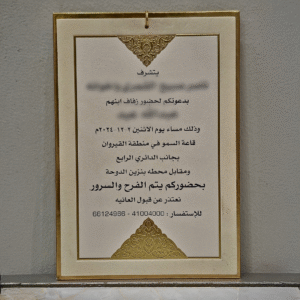 يتشرف
بدعوتكم لحضور زفاف ابنهم
وذلك مساء يوم الاثنين ٢٠٢٤-١٢-٠٢م
قاعة السمو في منطقة القيروان
بجانب الدائري الرابع
ومقابل محطه بنزين الدوحة
بحضوركم يتم الفرح والسرور
نعتذر عن قبول العانيه
للإستفسار : 41004000 - 66124998